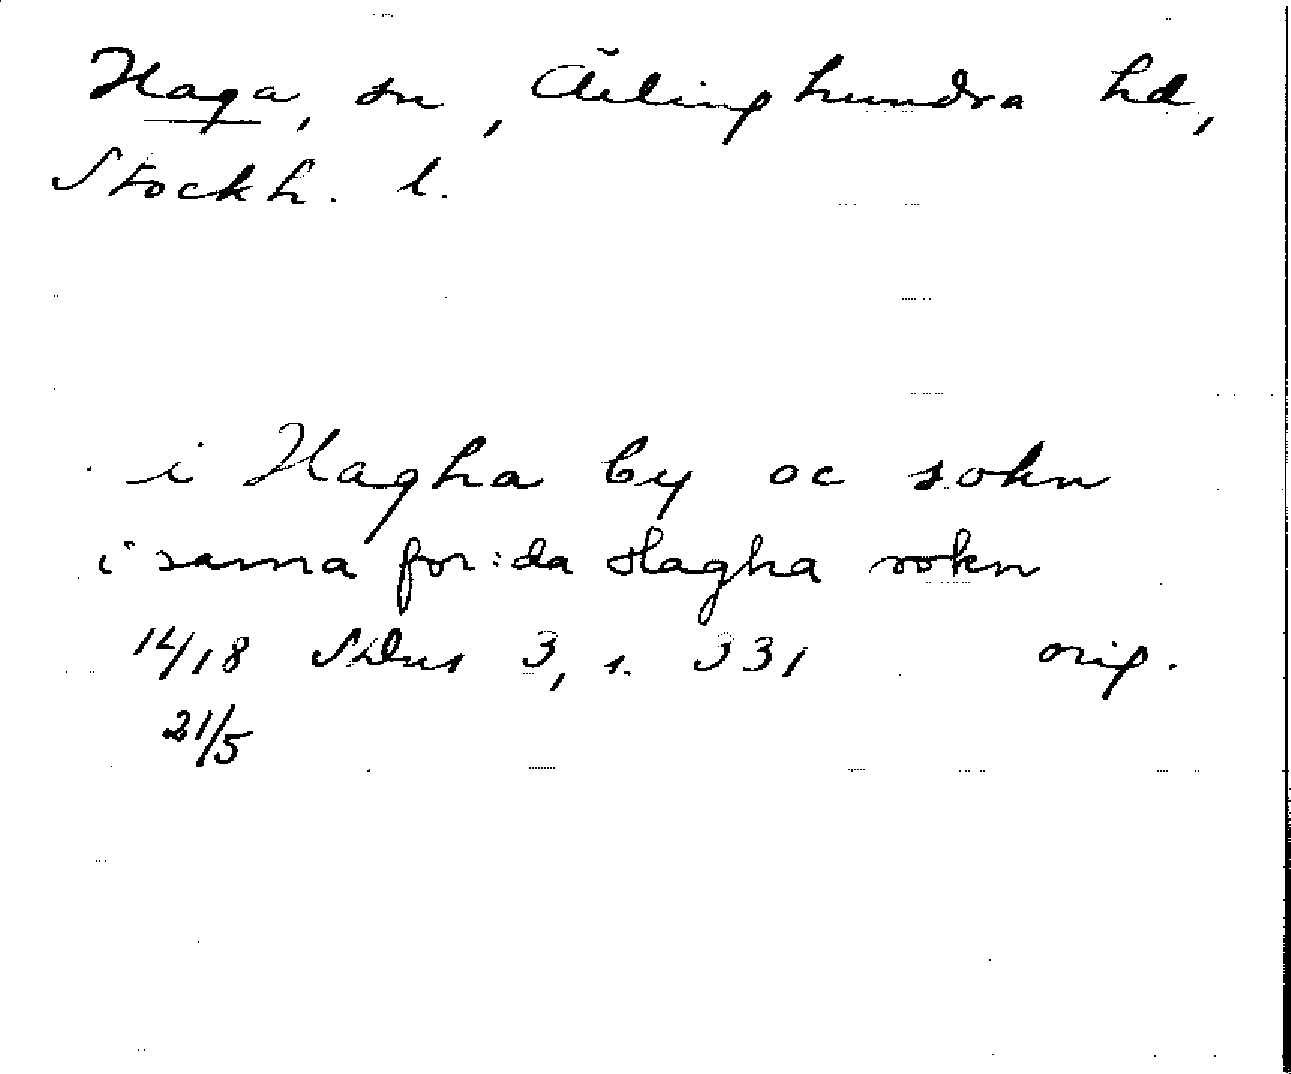 Haga, sn, Ärlinghundra hd,
Stockh. l.
i Hagha by oc sokn
i sama for:da Hagha sokn
14/18 SDns 3, s. 331 orig.
21/5